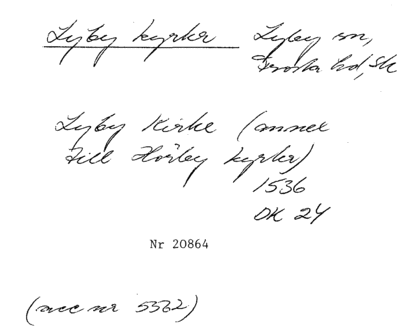 Lyby kyrka Lyby sn,
Frosta hd, Sk
Lyby Kirke (annex
till Hörby kyrka)
1536
OK 24
Nr 20864
(acc nr 5362)